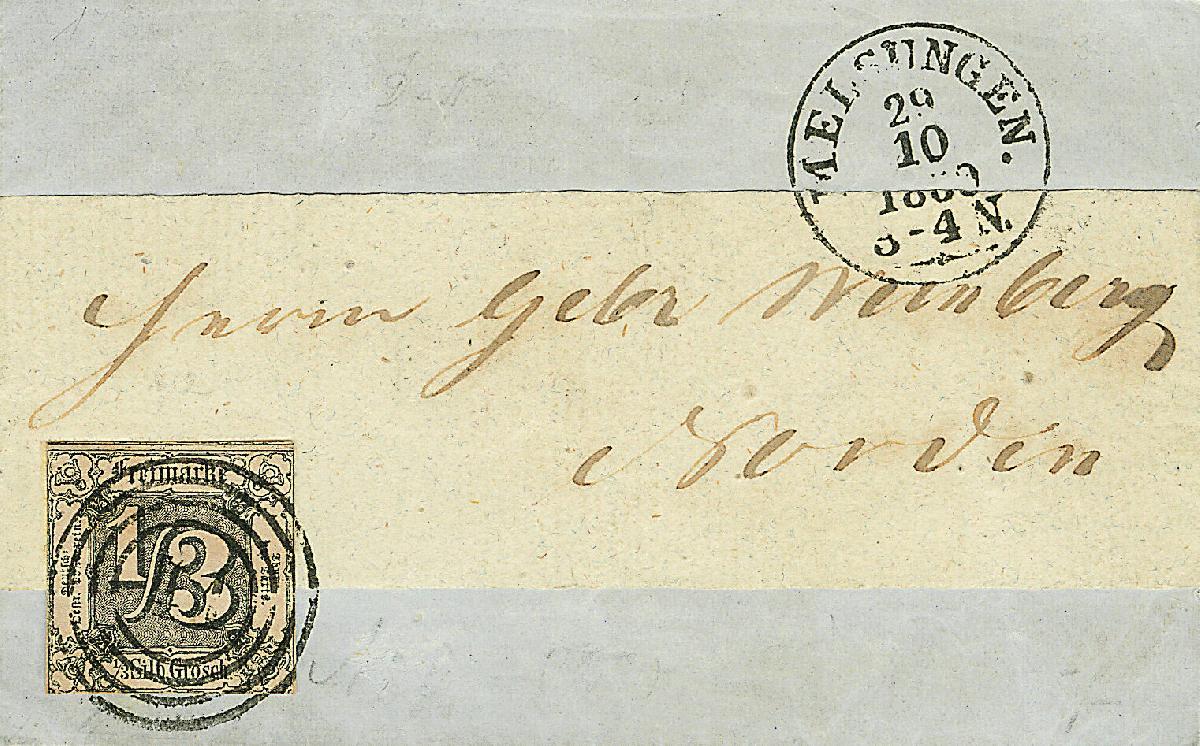 MELSUNGEN.
29
10
1860
3-4 N.
Herrn Gebr Weinberg
Norden
Freimarke
1/3
1/3 Silb. Grosch.